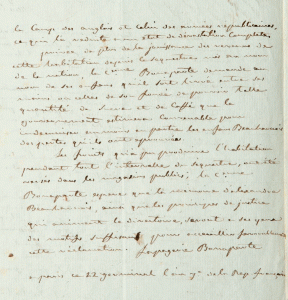 le Camp des anglois et celui des armées républicaines,
ce qui l'a réduite à un état de dévastation complète.
privée de plus de la jouissance des revenus de
cette habitation depuis le séquestre mis au nom
de la nation, la Cne Bonaparte demande au
nom de ses enfans qu'il soit livré entre ses
mains ou celles de son fondé de pouvoir telle
quantité de Sucre et de Caffé que le
gouvernement estimera convenable pour
indemniser en partie les enfans Beauharnais
des pertes qu'ils ont éprouvées.
Les fruits qu'a pu produire l'habitation
pendant tout l'intervalle du séquestre, ont été
versés dans les magasins publics; la Cne
Bonaparte espère que la mémoire d'Alexandre
Beauharnais, ainsi que les principes de justice
qui animent le directoire, seront à ses yeux
des motifs suffisans pour accueillir favorablement
cette réclamation. Lapagerie Bonaparte
à paris ce 22 germinal l'an de la Rep française